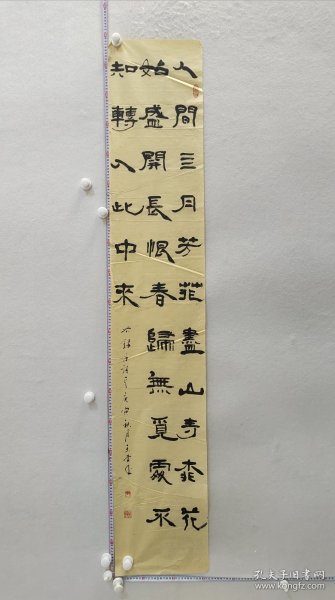 人間三月芳菲盡山寺桃花
始盛開長恨春歸無覓處不
知轉入此中來
孔夫子旧书网
www.kongfz.com